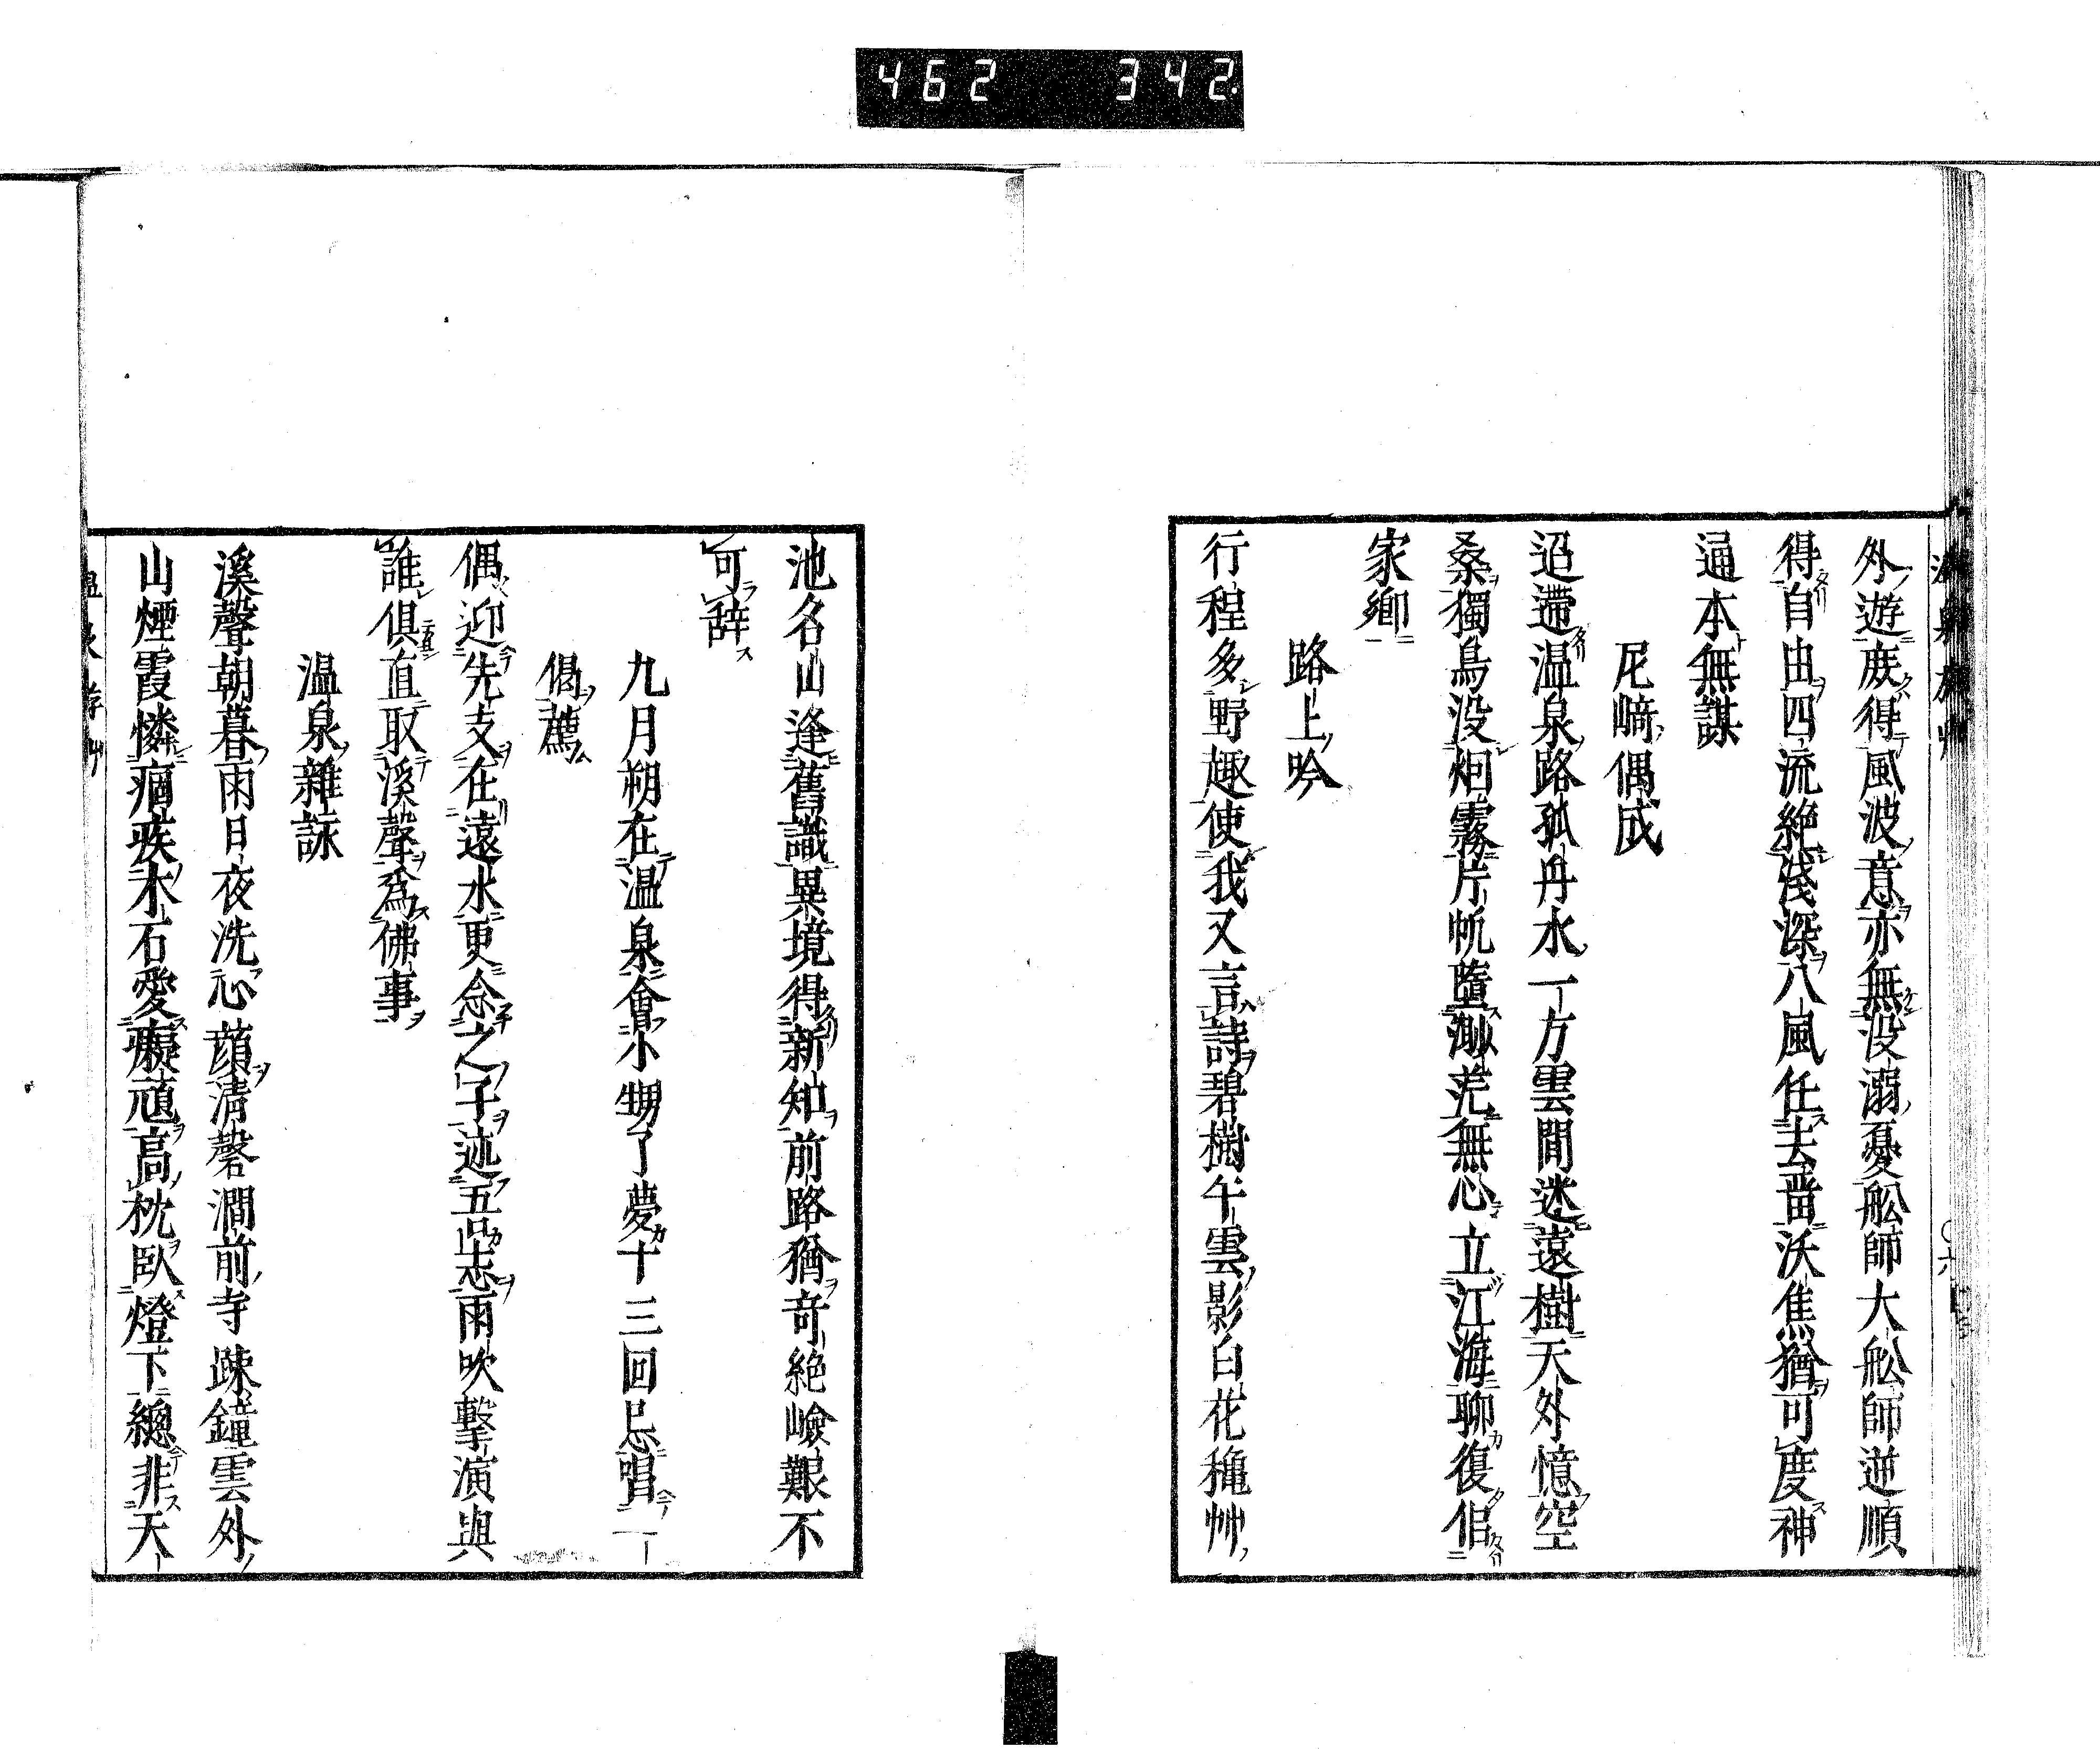 462 342
外遊庶得風波意亦無没溺憂舩師大舩師逆順
得自由四流絶淺深八風任去畱沃焦猶可度神
通本無謀
尼﨑偶成
迢遰温泉路孤舟水一方雲間迷遠樹天外憶空
桑獨鳥没烟霧片帆墮渺茫無心立江海聊復倡
家郷
路上吟
行程多野趣使我又言詩碧樹午雲影白花穐艸
池名山逢舊識異境得新知前路猶奇絶嶮艱不
可辞
九月朔在温泉會小甥了夢十三回忌唱一
偈薦
偶迎先支在遠水更念之子迹吾志雨吹擊演與
誰俱直取溪聲爲佛事
温泉雜詠
溪聲朝暮雨日夜洗心顔清磬澗前寺疎鐘雲外
山煙霞憐痼疾木石愛癡頑高枕臥燈下總非天